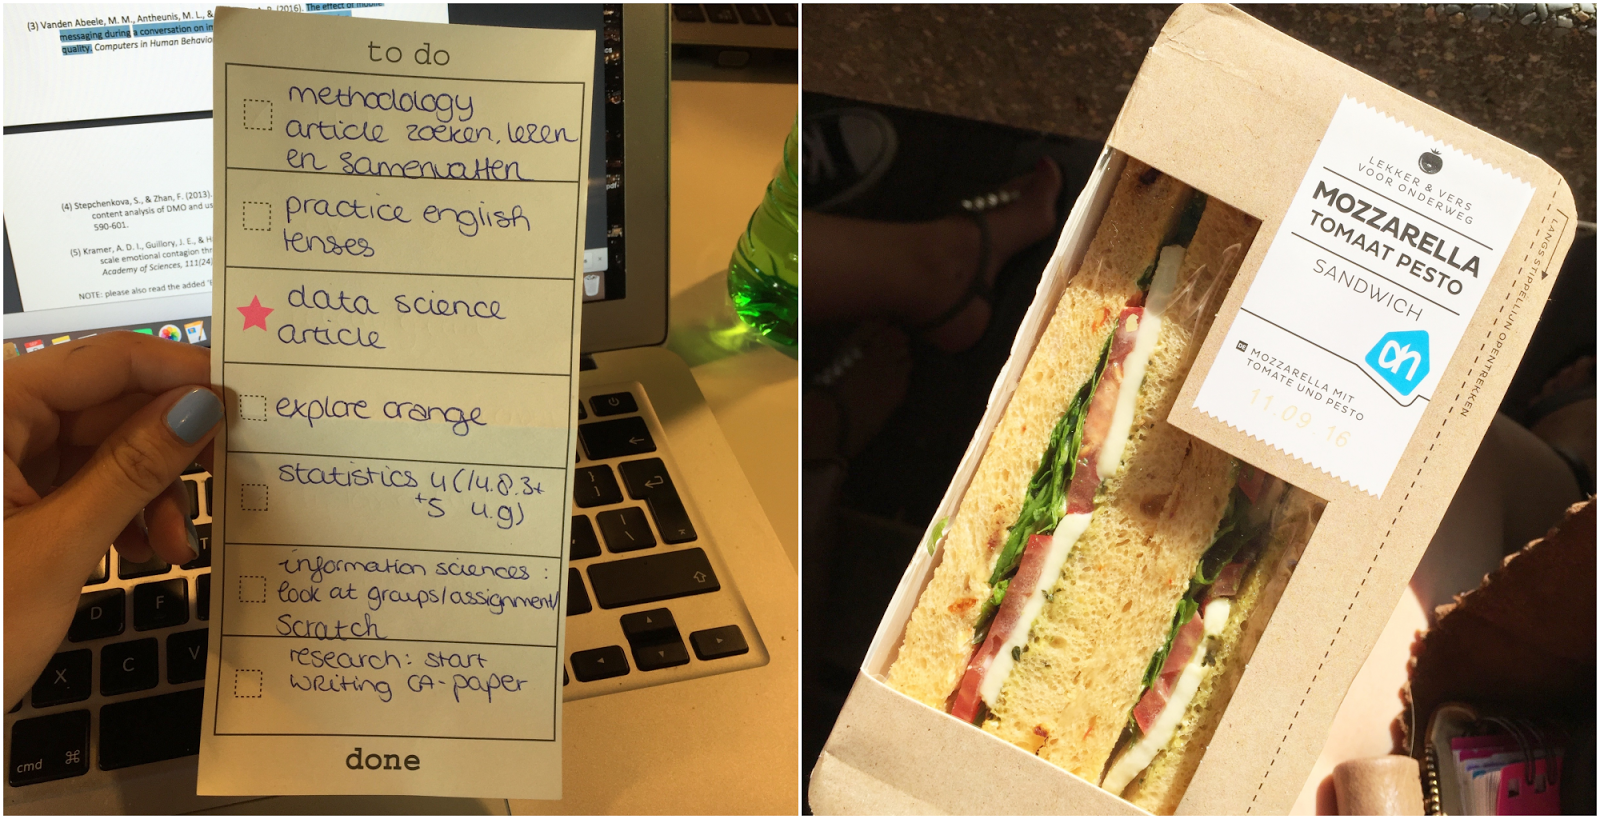 (3) Vanden Abeele, M. M., Antheunis, M. L., &
(2016). The effect of mobile
messaging during a conversation on
quality. Computers in Human Behavio
(4) Stepchenkova, S., & Zhan, F. (2013).
content analysis of DMO and us
590-601.
(5) Kramer, A. D. I., Guillory, J. E., & H
scale emotional contagion thr
Academy of Sciences, 111(24)
NOTE: please also read the added
to do
methodology
article zoeken, lezen
en samenvatten
practice english
tenses
data science
article
explore orange
statistics 4 (14.8.3+
+5 4.9)
information sciences:
look at groups/assignment/
Scratch
research: start
writing CA-paper
done
D
F
X
C
V
T
cmd ⌘
LEKKER & VERS
VOOR ONDERWEG
MOZZARELLA
TOMAAT PESTO
SANDWICH
DE MOZZARELLA MIT
TOMATE UND PESTO
11.09.16
ah
LANGS STIPPELLIJN OPENTREKKEN